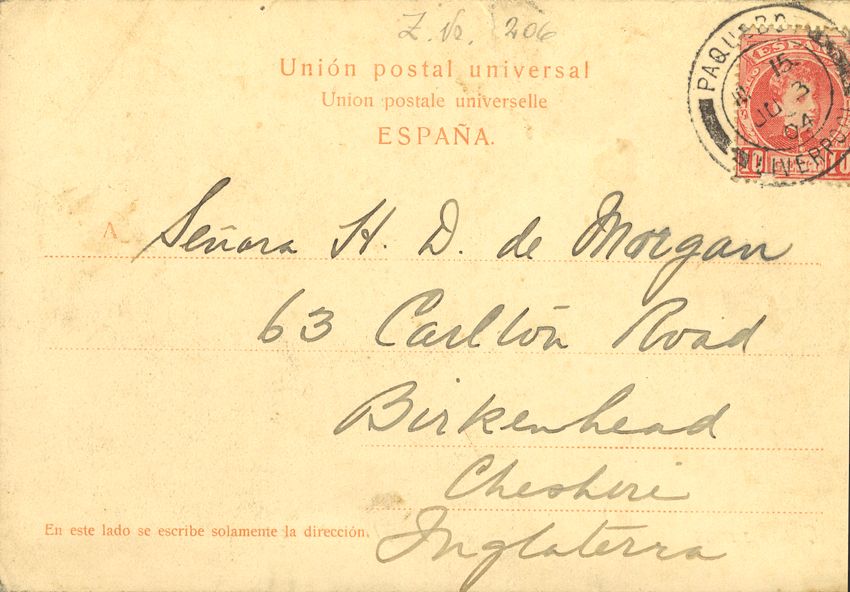 Z. Nr. 206
Unión postal universal
Union postale universelle
ESPAÑA.
PAQUEBOT
LIVERPOOL
15
JU 3
04
ESPAÑA
10
10
A
Señora H. D. de Morgan
63 Carlton Road
Birkenhead
Cheshire
Inglaterra
En este lado se escribe solamente la dirección.